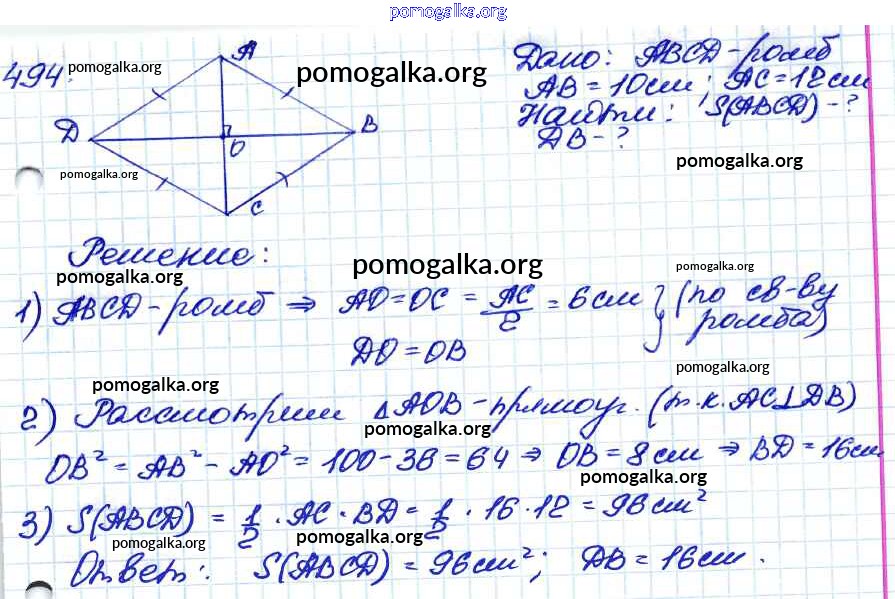 pomogalka.org
494.
pomogalka.org
A
D
B
O
C
pomogalka.org
pomogalka.org
Дано: ABCD-ромб
AB = 10см; AC = 12см
Найти: S(ABCD) - ?
DB - ?
pomogalka.org
Решение:
pomogalka.org
pomogalka.org
pomogalka.org
1) ABCD-ромб ⇒ AO = OC = AC/2 = 6 см } (по св-ву ромба)
DO = OB
pomogalka.org
pomogalka.org
2) Рассмотрим △AOB-прямоуг. (т.к. AC⊥DB)
pomogalka.org
OB² = AB² - AO² = 100 - 36 = 64 ⇒ OB = 8 см ⇒ BD = 16см
pomogalka.org
3) S(ABCD) = 1/2 · AC · BD = 1/2 · 16 · 12 = 96 см²
pomogalka.org
pomogalka.org
Ответ: S(ABCD) = 96см²; DB = 16см.